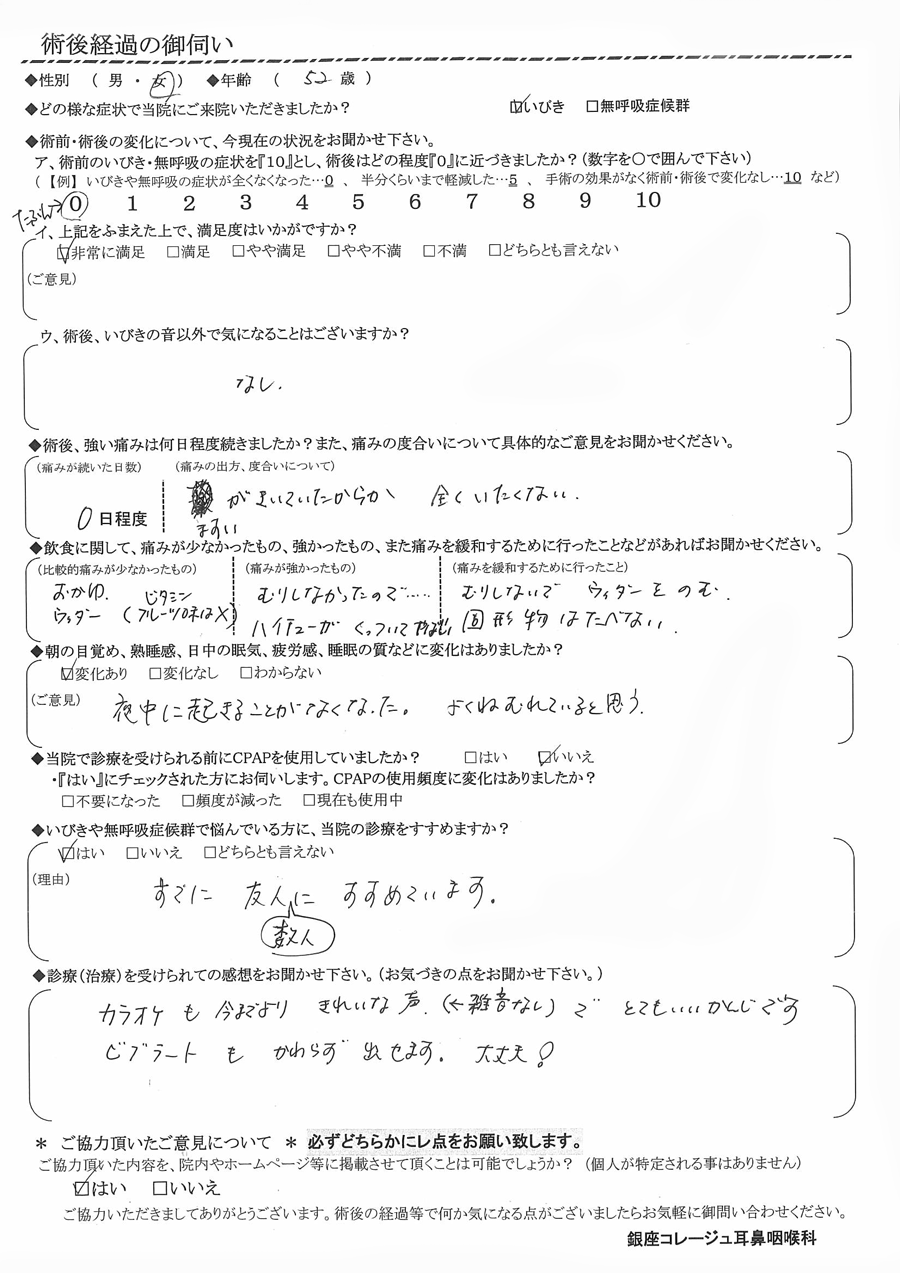 術後経過の御伺い
◆性別 （ 男 ・ 女 ） ◆年齢 （ 52 歳 ）
◆どの様な症状で当院にご来院いただきましたか？ ☑いびき □無呼吸症候群
◆術前・術後の変化について、今現在の状況をお聞かせ下さい。
ア、術前のいびき・無呼吸の症状を『10』とし、術後はどの程度『0』に近づきましたか？（数字を〇で囲んで下さい）
（【例】 いびきや無呼吸の症状が全くなくなった…0 、 半分くらいまで軽減した…5 、 手術の効果がなく術前・術後で変化なし…10 など）
たぶん→ 0 1 2 3 4 5 6 7 8 9 10
イ、上記をふまえた上で、満足度はいかがですか？
☑非常に満足 □満足 □やや満足 □やや不満 □不満 □どちらとも言えない
（ご意見）
ウ、術後、いびきの音以外で気になることはございますか？
なし.
◆術後、強い痛みは何日程度続きましたか？また、痛みの度合いについて具体的なご意見をお聞かせください。
（痛みが続いた日数） （痛みの出方、度合いについて）
0 日程度 がきいていたからか 全くいたくない.
ますい
◆飲食に関して、痛みが少なかったもの、強かったもの、また痛みを緩和するために行ったことなどがあればお聞かせください。
（比較的痛みが少なかったもの） （痛みが強かったもの） （痛みを緩和するために行ったこと）
おかゆ. ビタミン むりしなかったので…… むりしないで ウィダーをのむ.
ウィダー （フルーツ味は×） ハイチューが くっついて 固形物はたべない.
◆朝の目覚め、熟睡感、日中の眠気、疲労感、睡眠の質などに変化はありましたか？
☑変化あり □変化なし □わからない
（ご意見） 夜中に起きることがなくなった。 よくねむれていると思う.
◆当院で診療を受けられる前にCPAPを使用していましたか？ □はい ☑いいえ
・『はい』にチェックされた方にお伺いします。CPAPの使用頻度に変化はありましたか？
□不要になった □頻度が減った □現在も使用中
◆いびきや無呼吸症候群で悩んでいる方に、当院の診療をすすめますか？
☑はい □いいえ □どちらとも言えない
（理由） すでに 友人に すすめています.
数人
◆診療（治療）を受けられての感想をお聞かせ下さい。（お気づきの点をお聞かせ下さい。）
カラオケも 今までより きれいな声.（←雑音なし）で とてもいいかんじです
ビブラートも かわらず 出せます. 大丈夫！
＊ ご協力頂いたご意見について ＊ 必ずどちらかにレ点をお願い致します。
ご協力頂いた内容を、院内やホームページ等に掲載させて頂くことは可能でしょうか？ （個人が特定される事はありません）
☑はい □いいえ
ご協力いただきましてありがとうございます。術後の経過等で何か気になる点がございましたらお気軽に御問い合わせください。
銀座コレージュ耳鼻咽喉科